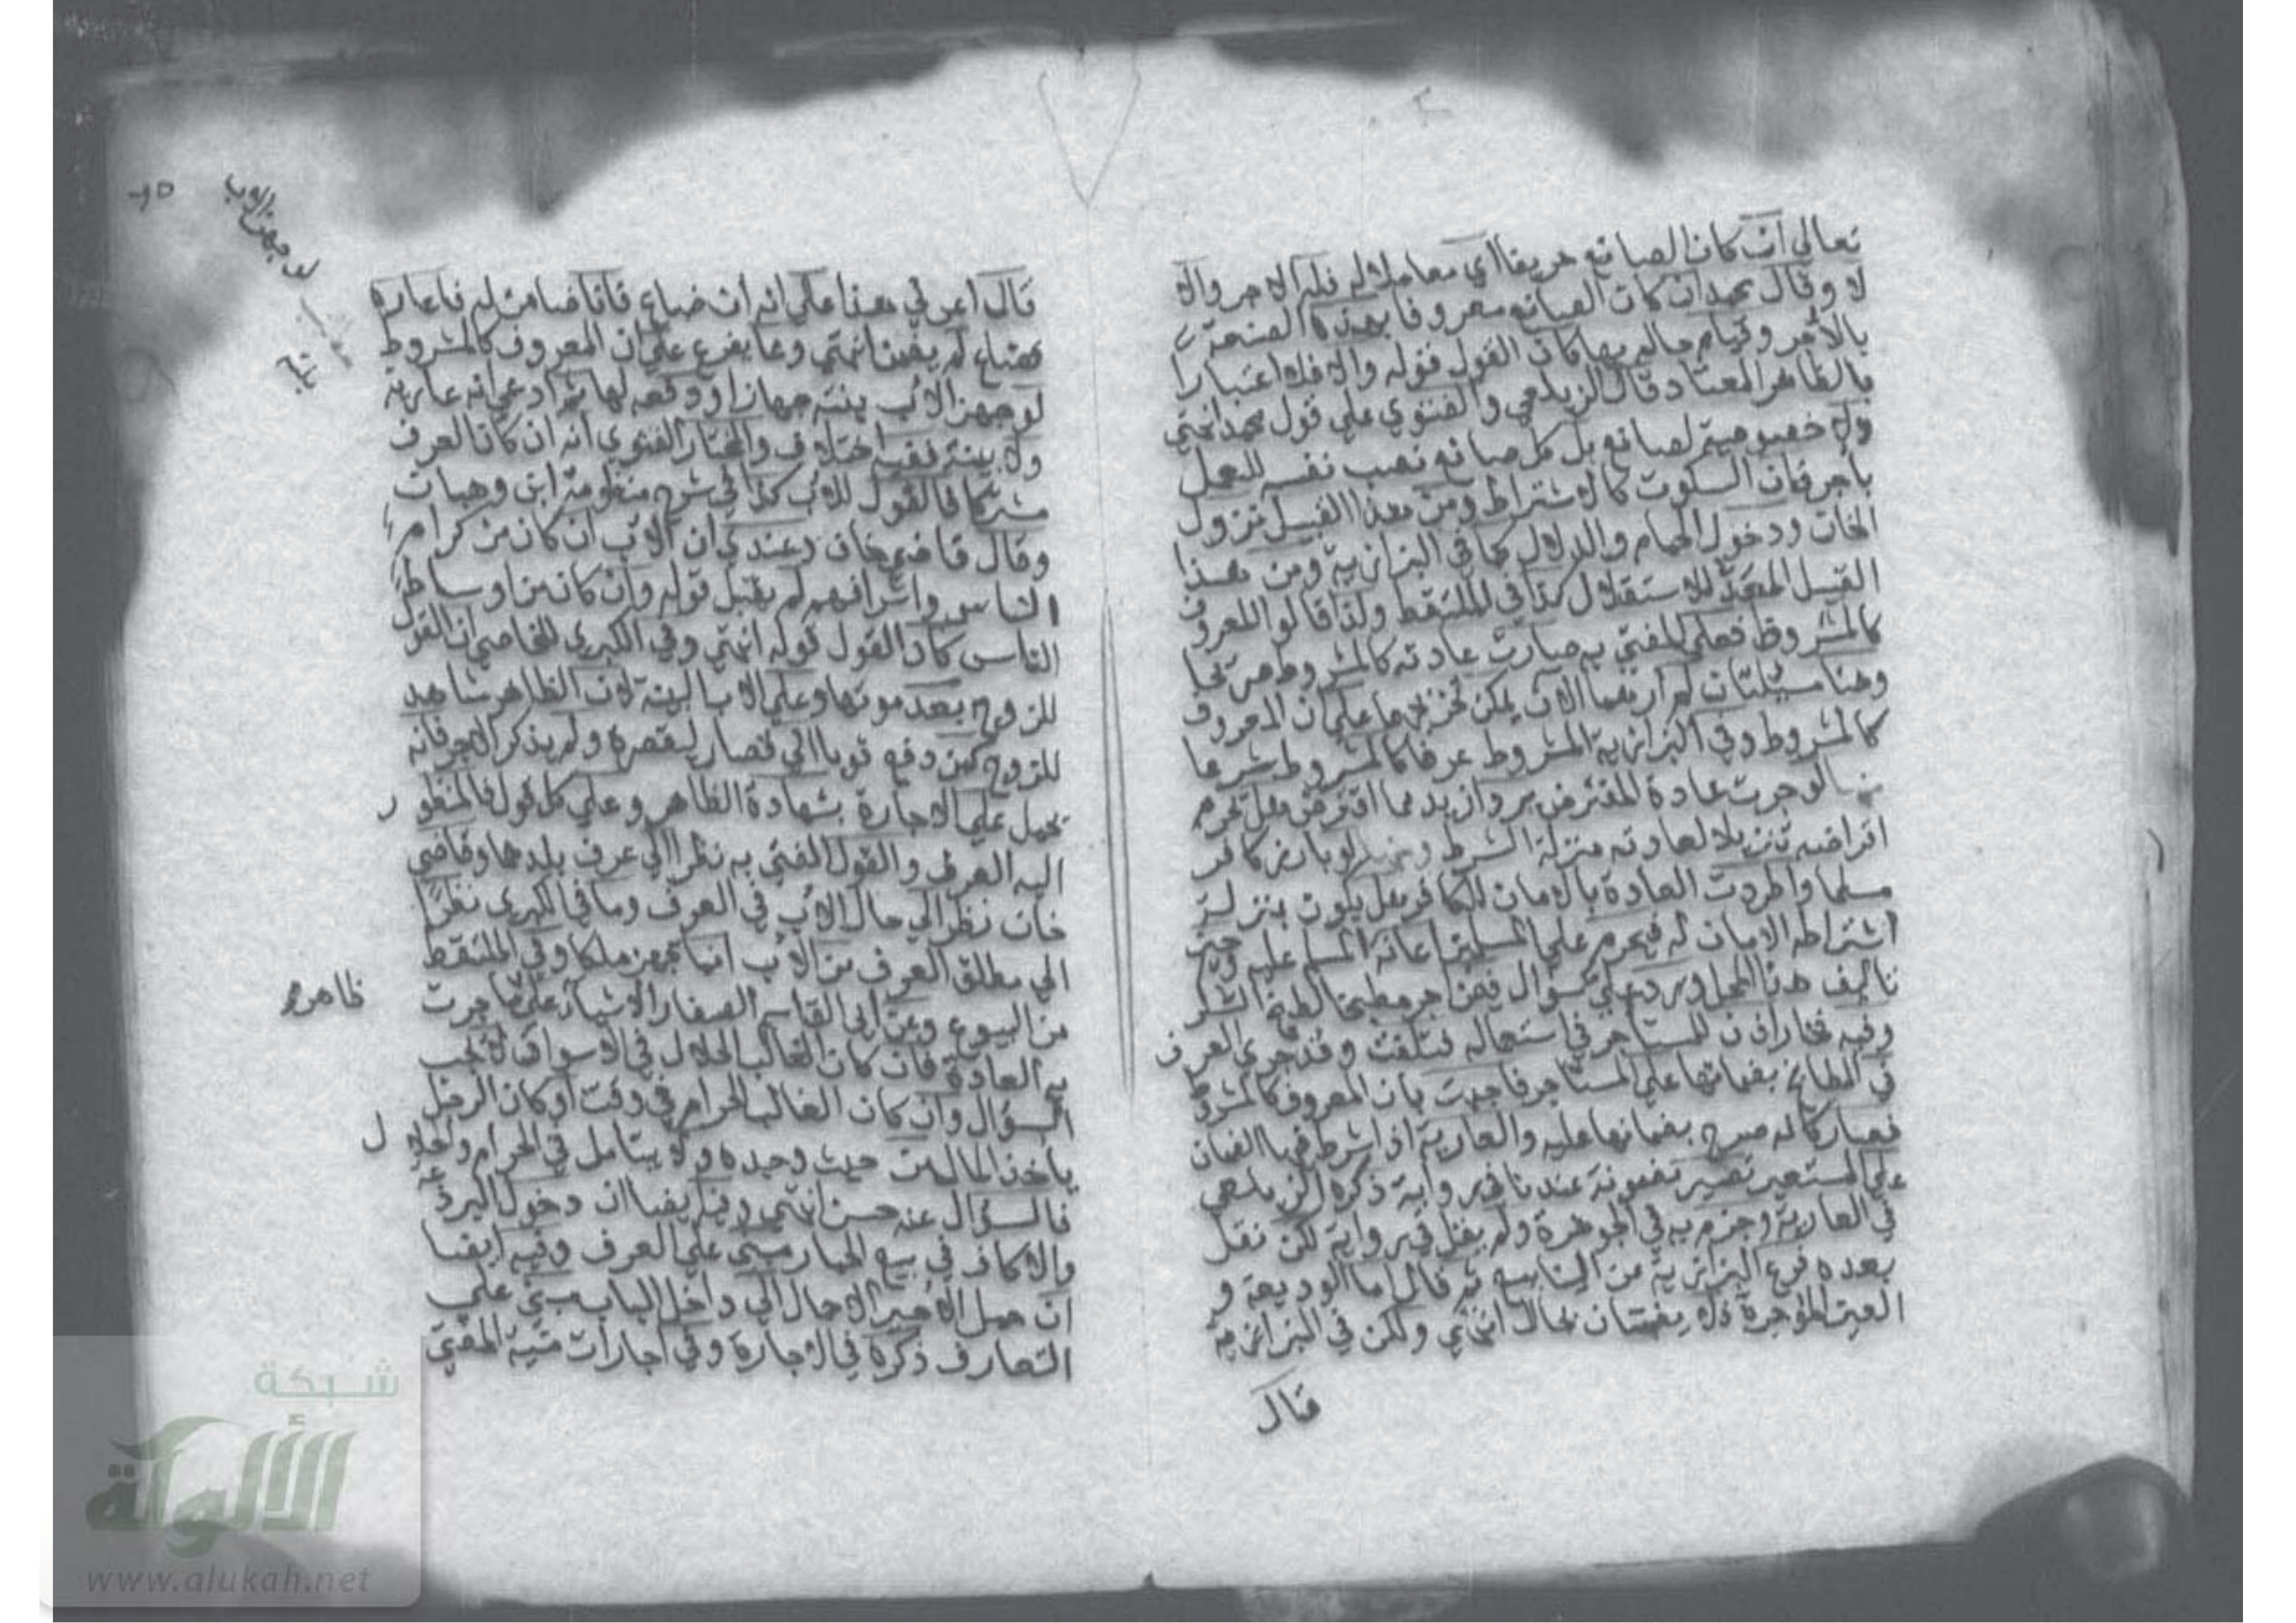 تعالى ان كان الصانع حريفا اي معاملا له فله الاجر والا
لا وقال محمد ان كان الصانع معروفا بهذه الصنعة
بالأجر وقيام حاله بها كان القول قوله والا فلا اعتبارا
بالظاهر المعتاد قال الزيلعي والفتوي علي قول محمد انتهي
ولا خصوصية لصانع بل كل صانع نصب نفسه للعمل
بأجر فان السكوت كالاشتراط ومن هذا القبيل نزول
الخان ودخول الحمام والدلال كما في البزازية ومن هذا
القبيل المعد للاستغلال كذا في الملتقط ولذا قالوا المعروف
كالمشروط فعلي المفتي به صارت عادته كالمشروط صريحا
وهنا مسئلتان لم ارهما الآن يمكن تخريجها علي ان المعروف
كالمشروط وفي البزازية المشروط عرفا كالمشروط شرعا
منها لو جرت عادة المقترض برد ازيد مما اقترض هل تحرم
اقراضه تنزيلا لعادته منزلة الشرط لو بارز كافر
مسلما واطردت العادة بالامان للكافر هل يكون بمنزلة
اشتراطه الامان له فيحرم علي المسلمين اعانة المسلم عليه وحين
تاليف هذا المحل ورد علي سؤال فمن اجر مطبخا لطبخ السكر
وفيه فخار اذن للمستاجر في استعماله فتلفت وقد جري العرف
في المطابخ بضمانها علي المستاجر فاجبت بان المعروف كالمشروط
فصار كانه صرح بضمانها عليه والعارية اذا شرط فيها الضمان
علي المستعير تصير مضمونة عندنا في رواية ذكره الزيلعي
في العارية وجزم به في الجوهرة ولم يقل في رواية لكن نقل
بعده فرع البزازية من الينابيع ثم قال اما الوديعة و
العين المؤجرة فلا يضمنان بحال انتهي ولكن في البزازية
قال
قال اعرني هذا علي انه ان ضاع فانا ضامن له فاعاره
فضاع لم يضمن انتهي ومما يفرع علي ان المعروف كالمشروط
لو جهز الأب بنته جهازا ودفعه لها ثم ادعي انه عارية
ولا بينة ففيه اختلاف والمختار للفتوي انه ان كان العرف
مشتركا فالقول للأب كذا في شرح منظومة ابن وهبان
وقال قاضي خان وعندي ان الأب ان كان من كرام
الناس واشرافهم لم يقبل قوله وان كان من اوساط
الناس كان القول قوله انتهي وفي الكبري للخاصي ان القول
للزوج بعد موتها وعلي الاب البينة لان الظاهر شاهد
للزوج كمن دفع ثوبا الي قصار ليقصره ولم يذكر الاجر فانه
يحمل علي الاجارة بشهادة الظاهر وعلي كل قول فالمنظور
اليه العرف والقول المفتي به نظرا الي عرف بلدهما وقاضي
خان نظر الي حال الاب في العرف وما في الكبري نظرا
الي مطلق العرف من الأب انما يجهز ملكا وفي الملتقط
من البيوع وعن ابي القاسم الصفار الاشياء علي ما جرت
به العادة فان كان الغالب الحلال في الاسواق لا يجب
السؤال وان كان الغالب الحرام في وقت او كان الرجل
ياخذ المال من حيث وجده ولا يتامل في الحرام والحلال
فالسؤال عنه حسن انتهي وفيه ايضا ان دخول البردعة
والاكاف في بيع الحمار مبني علي العرف وفيه ايضا
ان حمل الأجير الاحمال الي داخل الباب مبني علي
التعارف ذكره في الاجارة وفي اجارات منية المفتي
لو جهز الاب
ظاهر